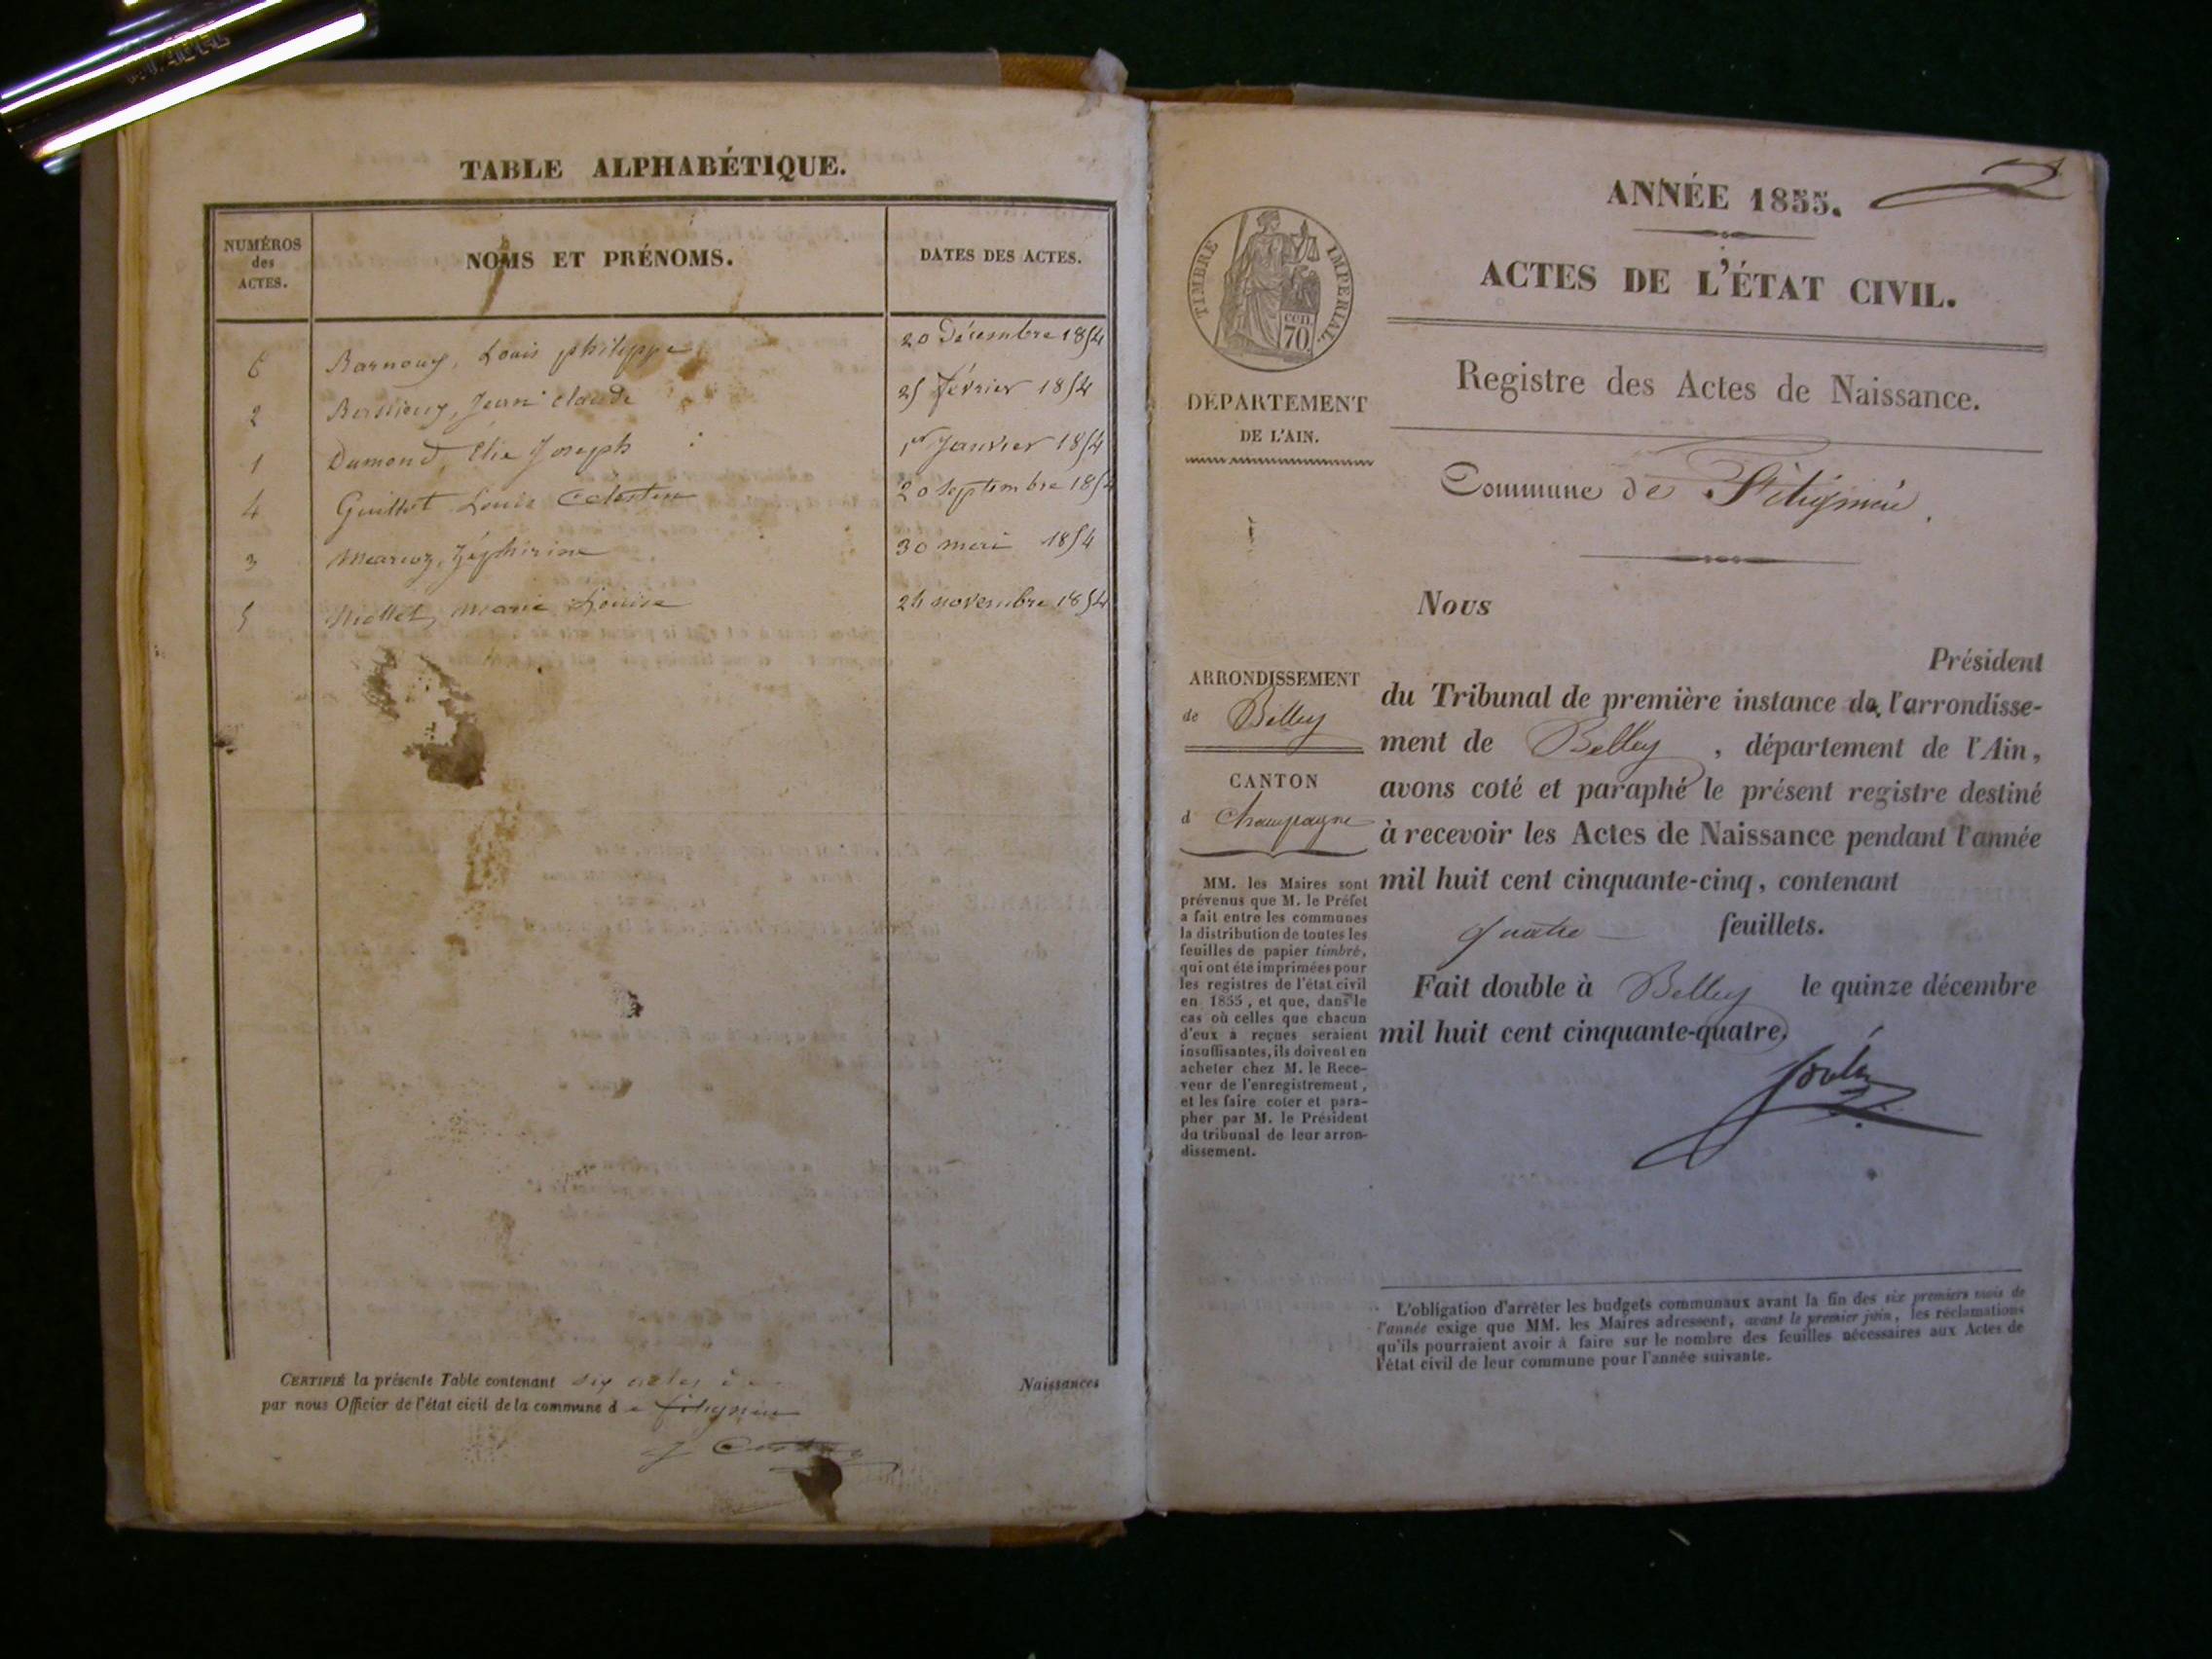 TABLE ALPHABÉTIQUE.
NUMÉROS
des
ACTES.
NOMS ET PRÉNOMS.
DATES DES ACTES.
6 Barnouy, Louis philippe 20 Décembre 1854
2 Jean claude 25 février 1854
1 Dumond, Elie Joseph 1er Janvier 1854
4 Guillot Louis Celestin 20 septembre 1854
3 Zéphirine 30 mai 1854
5 marie Louise 24 novembre 1854
CERTIFIÉ la présente Table contenant six actes de Naissances
par nous Officier de l'état civil de la commune d e fitignieu
ANNÉE 1855.
ACTES DE L'ÉTAT CIVIL.
Registre des Actes de Naissance.
Commune de Fitignieu.
TIMBRE IMPERIAL
CEN
70
DEPARTEMENT
DE L'AIN.
ARRONDISSEMENT
de Belley
CANTON
d Champagne
MM. les Maires sont
prévenus que M. le Préfet
a fait entre les communes
la distribution de toutes les
feuilles de papier timbré,
qui ont été imprimées pour
les registres de l'état civil
en 1855, et que, dans le
cas où celles que chacun
d'eux a reçues seraient
insuffisantes, ils doivent en
acheter chez M. le Rece-
veur de l'enregistrement,
et les faire coter et para-
pher par M. le Président
du tribunal de leur arron-
dissement.
Nous
Président
du Tribunal de première instance de l'arrondisse-
ment de Belley, département de l'Ain,
avons coté et paraphé le présent registre destiné
à recevoir les Actes de Naissance pendant l'année
mil huit cent cinquante-cinq, contenant
quatre feuillets.
Fait double à Belley le quinze décembre
mil huit cent cinquante-quatre.
L'obligation d'arrêter les budgets communaux avant la fin des six premiers mois de
l'année exige que MM. les Maires adressent, avant le premier juin, les réclamations
qu'ils pourraient avoir à faire sur le nombre des feuilles nécessaires aux Actes de
l'état civil de leur commune pour l'année suivante.